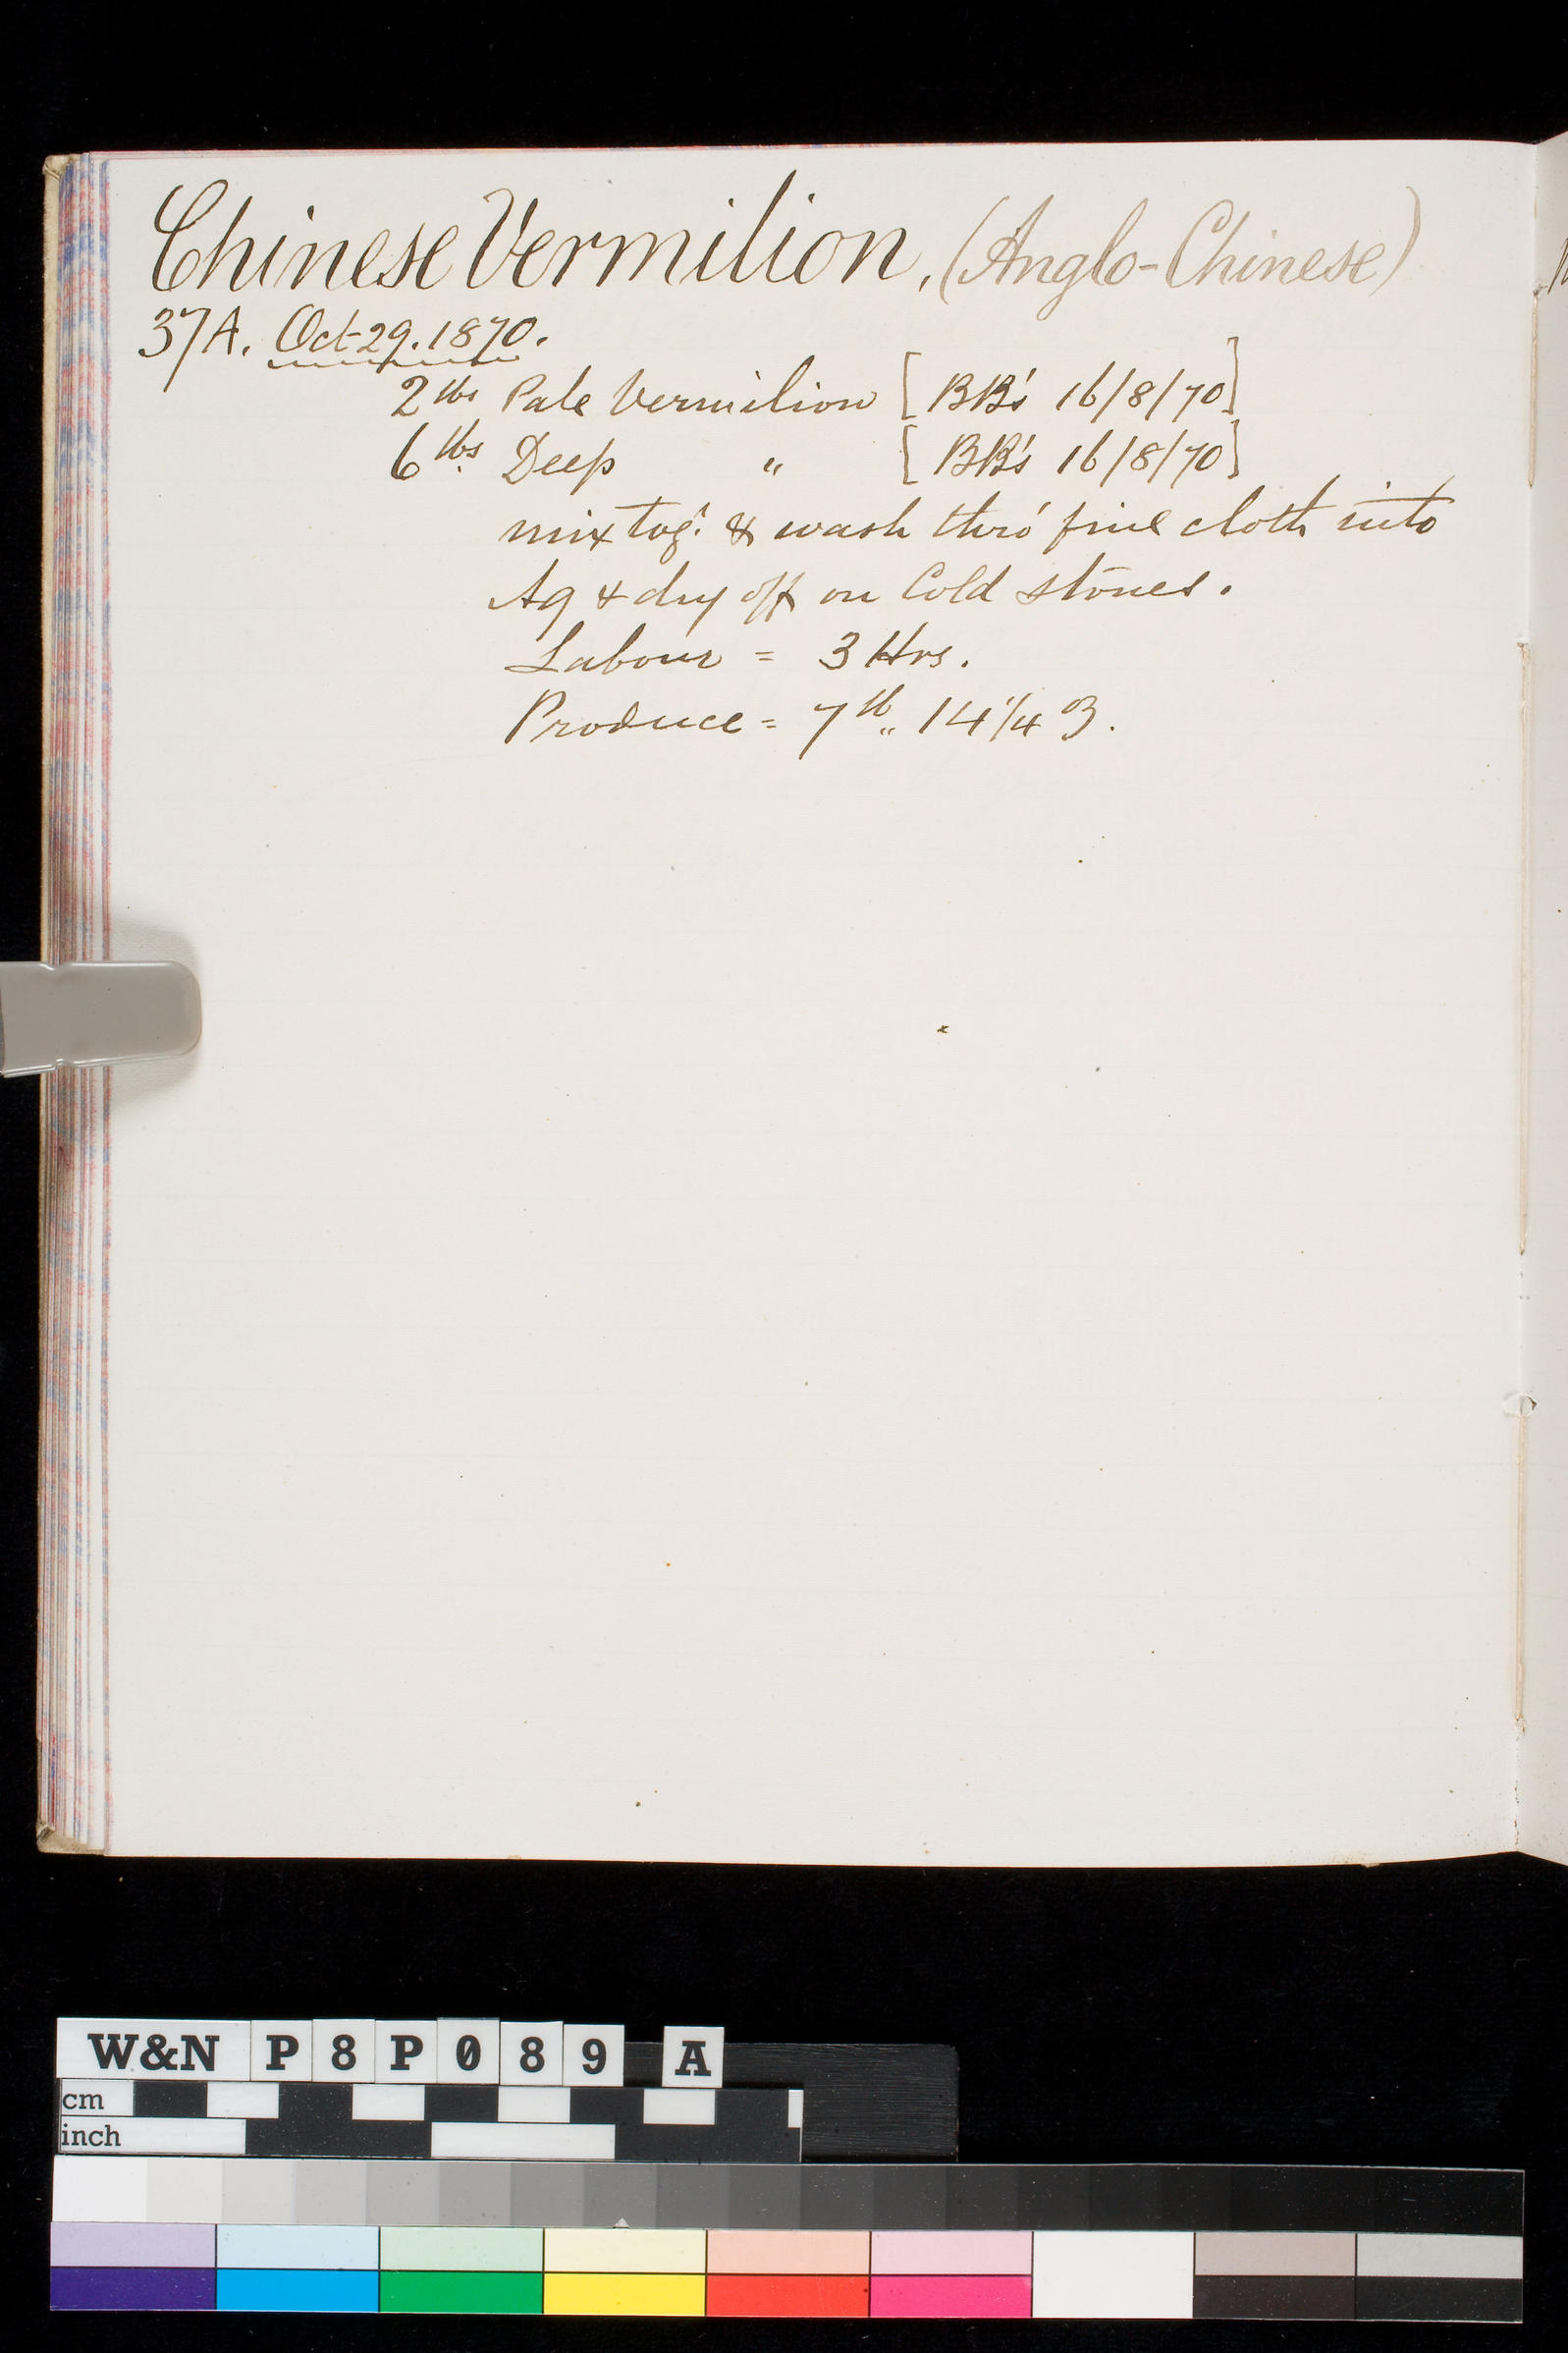 Chinese Vermilion, (Anglo-Chinese)
37A. Oct 29. 1870.
2 lbs Pale Vermilion [BB's 16/8/70]
6 lbs Deep " [BB's 16/8/70]
mix togr. & wash thro' fine cloth into
Aq & dry off on Cold stones.
Labour = 3 Hrs.
Produce = 7 lb ,, 14 1/4 ℥.
W&N P8P089 A
cm
inch